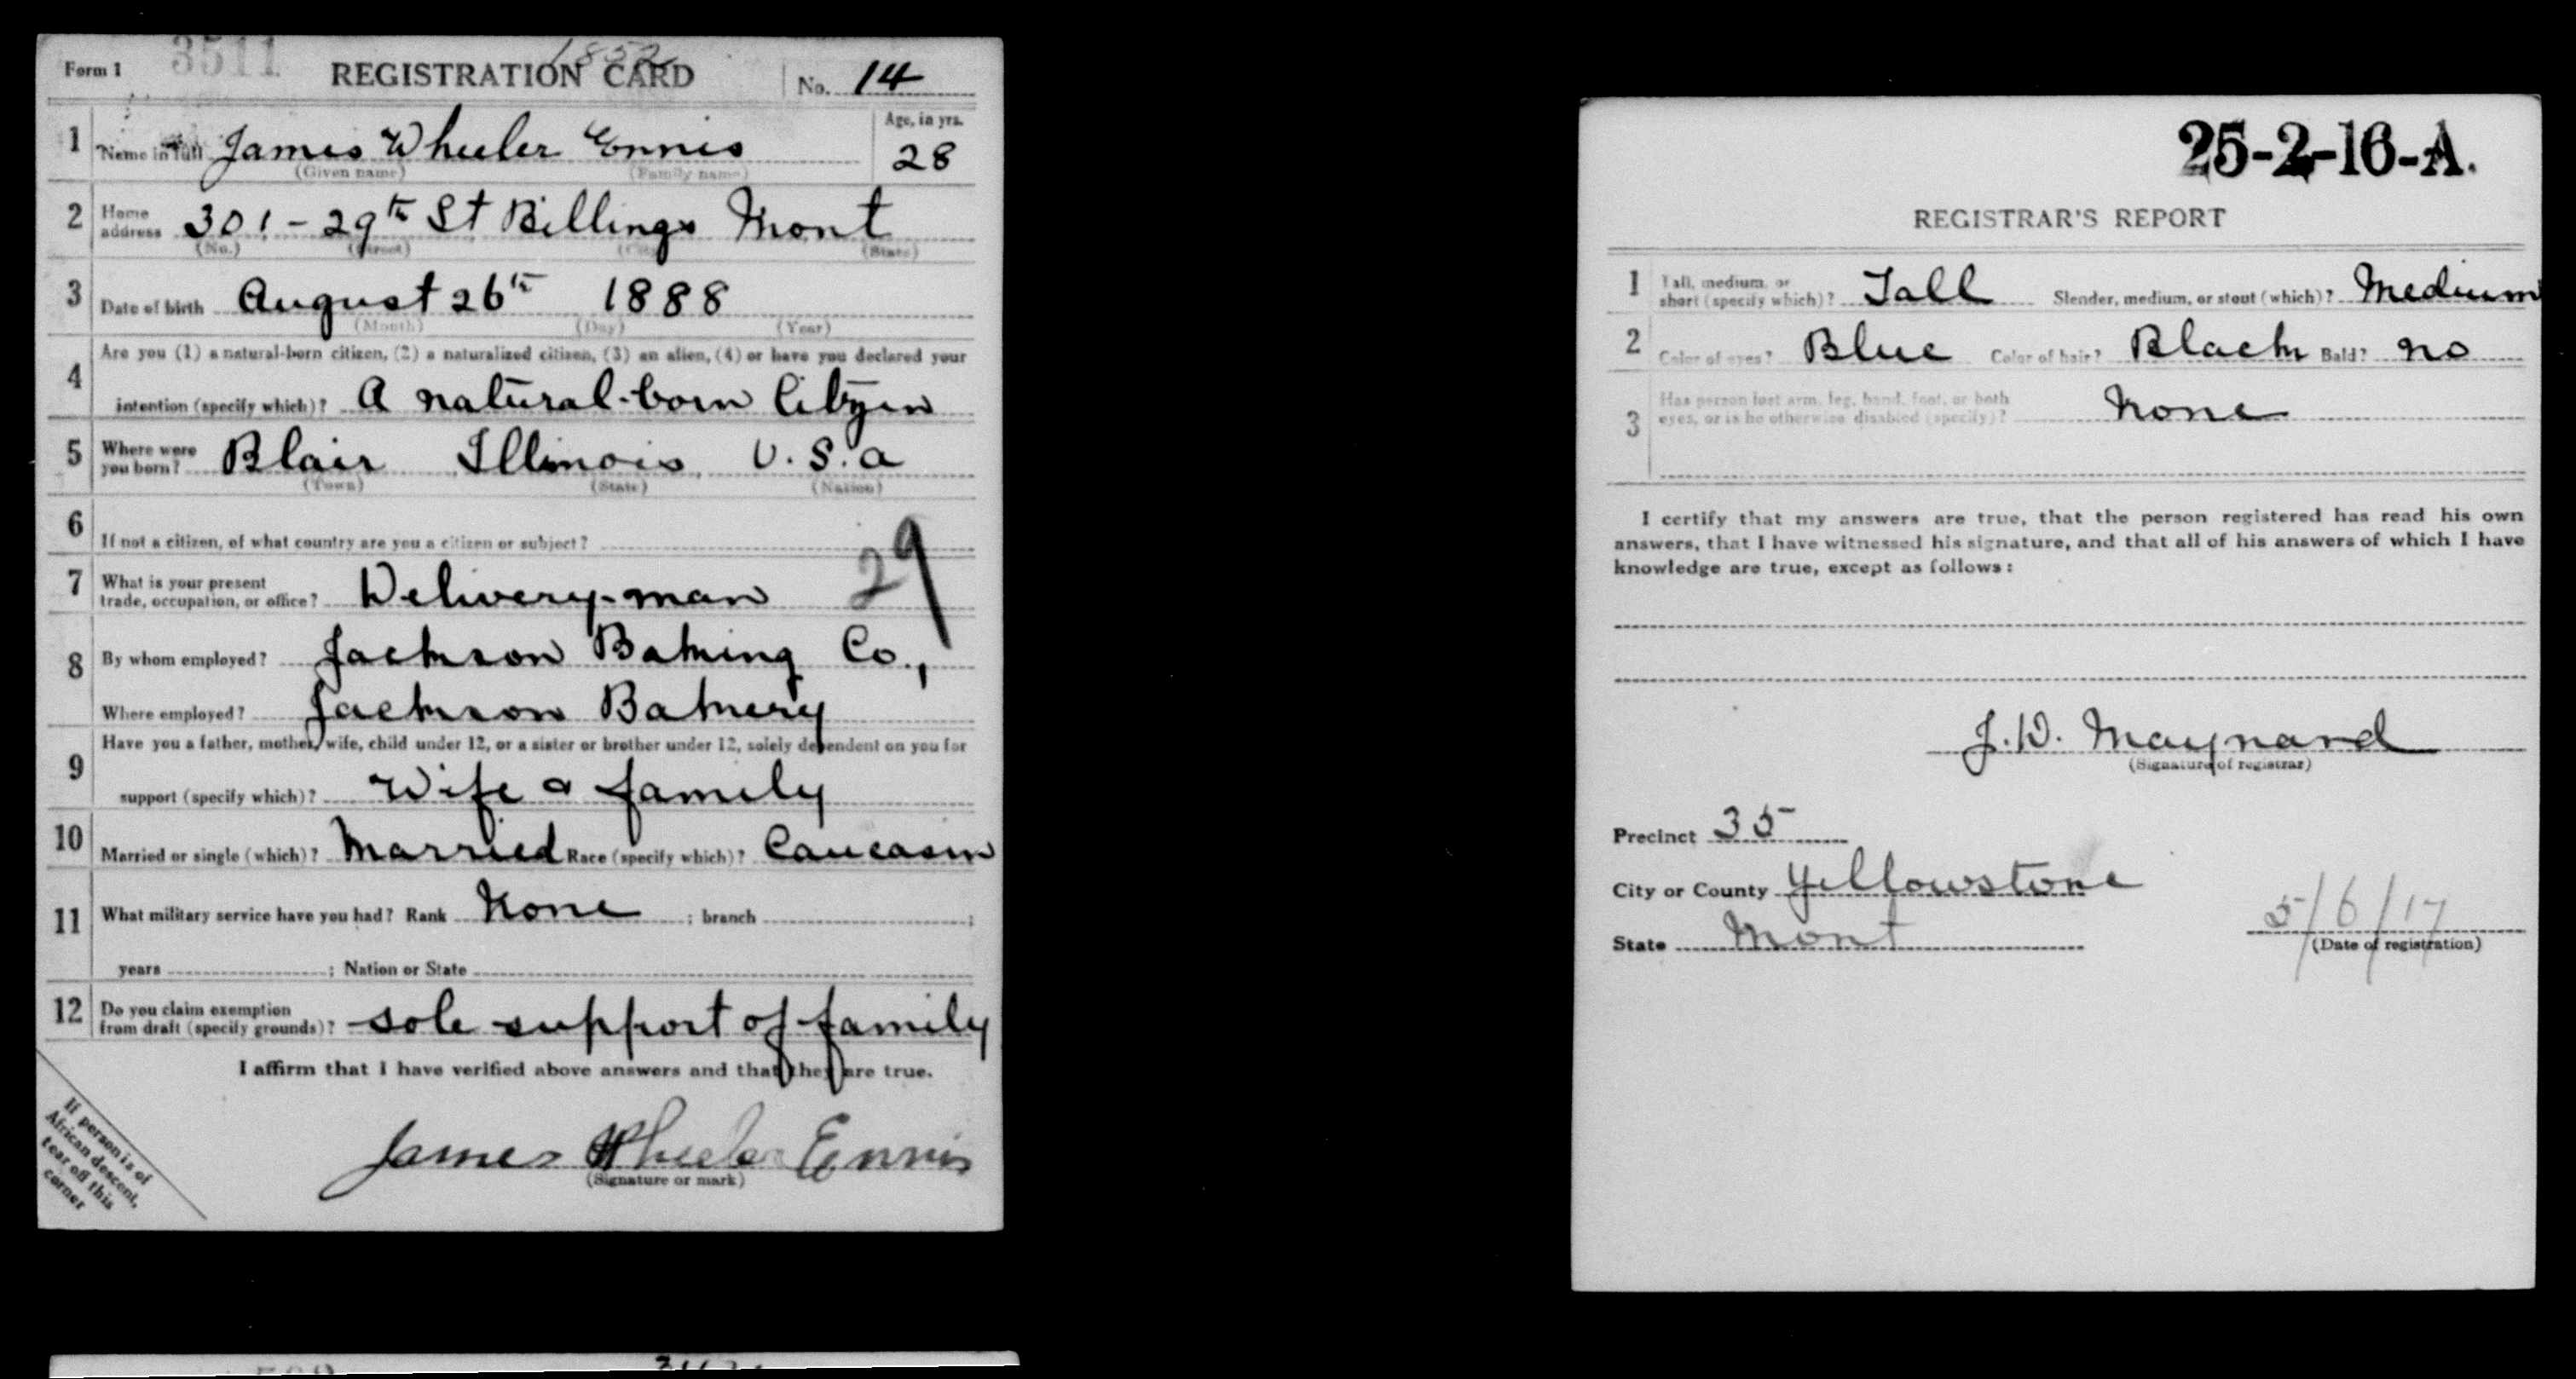 Form 1 3511 REGISTRATION CARD 1852 No. 14
1 Name in full James Wheeler Ennis Age, in yrs.
(Given name) (Family name) 28
2 Home address 301 - 29th St Billings Mont
(No.) (Street) (City) (State)
3 Date of birth August 26th 1888
(Month) (Day) (Year)
4 Are you (1) a natural-born citizen, (2) a naturalized citizen, (3) an alien, (4) or have you declared your
intention (specify which)? A natural-born Citizen
5 Where were you born? Blair Illinois U.S.a
(Town) (State) (Nation)
6 If not a citizen, of what country are you a citizen or subject?
29
7 What is your present trade, occupation, or office? Delivery-man
8 By whom employed? Jackson Baking Co.,
Where employed? Jackson Bakery
9 Have you a father, mother, wife, child under 12, or a sister or brother under 12, solely dependent on you for
support (specify which)? Wife & family
10 Married or single (which)? Married Race (specify which)? Caucasin
11 What military service have you had? Rank None ; branch ;
years ; Nation or State
12 Do you claim exemption from draft (specify grounds)? sole support of family
I affirm that I have verified above answers and that they are true.
James Wheeler Ennis
(Signature or mark)
If person is of
African descent,
tear off this
corner
25-2-16-A.
REGISTRAR'S REPORT
1 Tall, medium, or short (specify which)? Tall Slender, medium, or stout (which)? Medium
2 Color of eyes? Blue Color of hair? Black Bald? no
3 Has person lost arm, leg, hand, foot, or both
eyes, or is he otherwise disabled (specify)? None
I certify that my answers are true, that the person registered has read his own
answers, that I have witnessed his signature, and that all of his answers of which I have
knowledge are true, except as follows:
J. W. Maynard
(Signature of registrar)
Precinct 35
City or County Yellowstone
State Mont
5/6/17
(Date of registration)